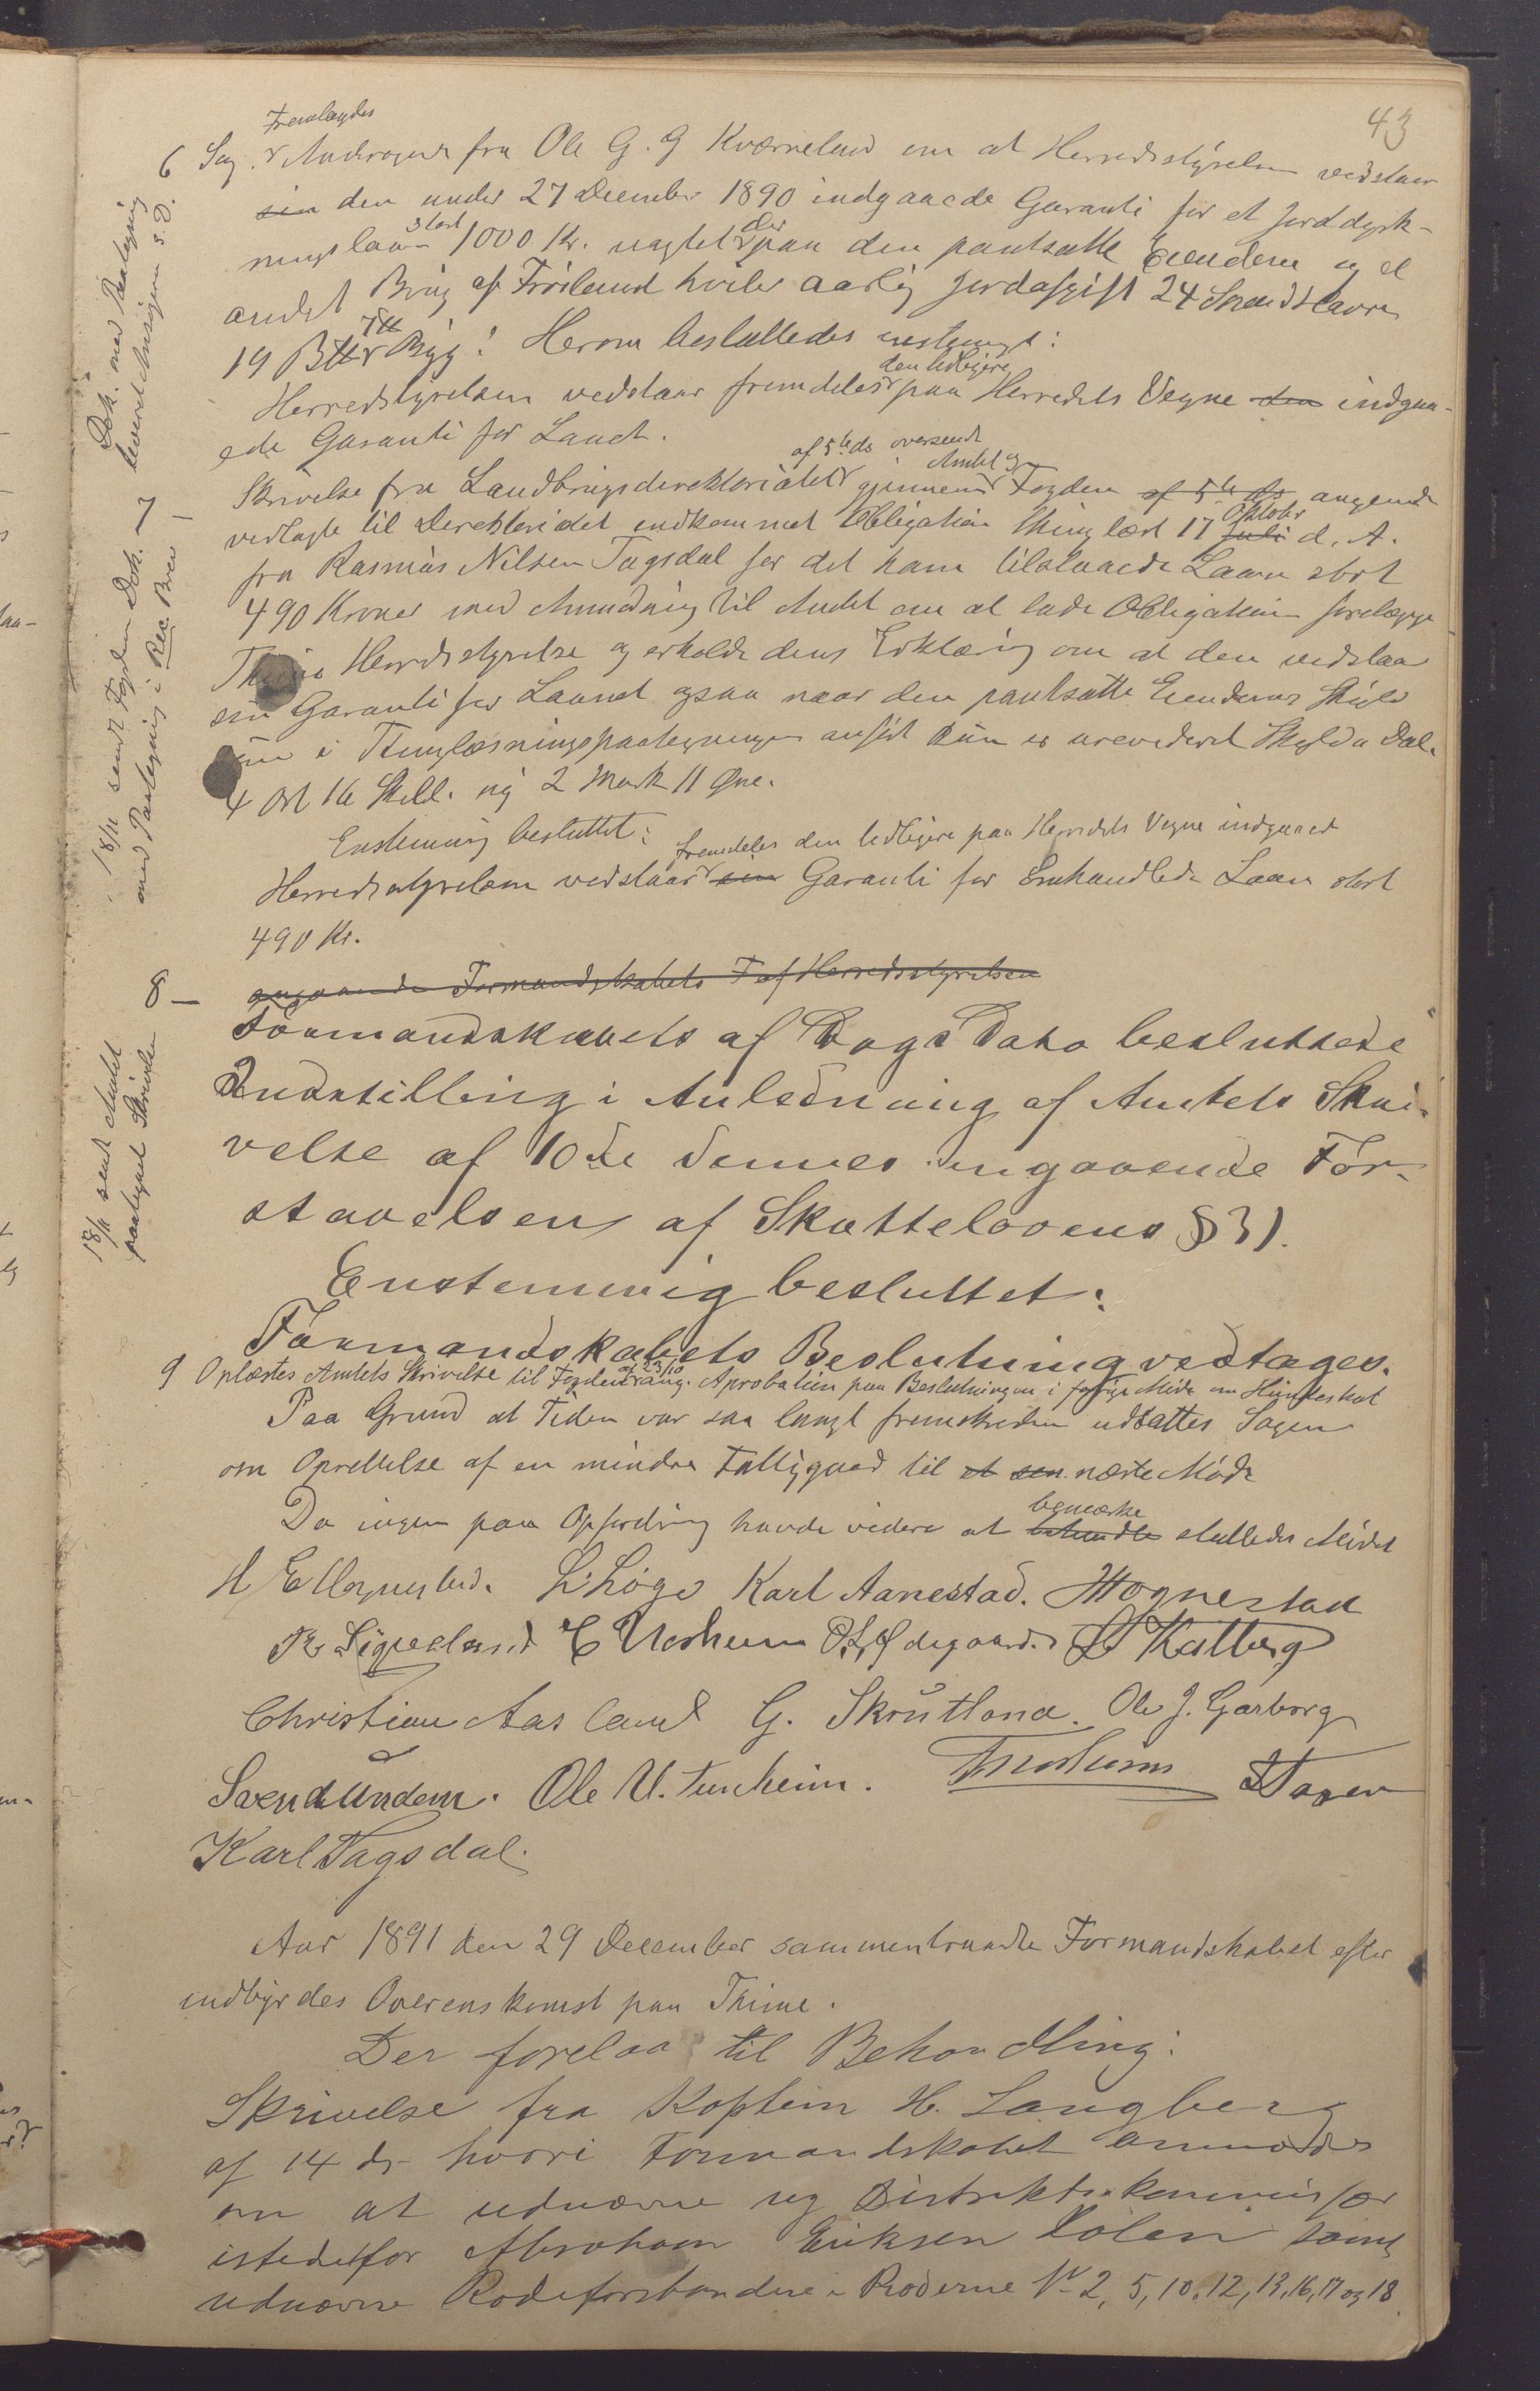 43
Fremlagdes
6 Sag. Andragende fra Ole G. G Kværneland om at Herredsstyrelsen vedstaar
sin den under 27 December 1890 indgaaede Garanti for et Jorddyrk-
ningslaan stort 1000 Kr. uagtet der paa den pantsatte Eiendom og et
andet Brug af Frøiland hviler aarlig Jordafgift 24 Skand Havre
19 B Byg. Herom besluttedes enstemmigt:
Herredstyrelsen vedstaar fremdeles den tidligere paa Herredets Vegne den indgaa-
ede Garanti for Laanet.
7 – Skrivelse fra Landbrugsdirektoriatet af 5te ds oversendt gjennem Amtet og Fogden af 5te ds angaaende
vedlagte til Direktoriatet indkommet Obligation thinglæst 17 Juli Oktober d. A.
fra Rasmus Nilsen Tagsdal for det ham tilstaaede Laan stort
490 Kroner med Anmodning til Amtet om at lade Obligation forelægge
Thime Herredsstyrelse og erholde dens Erklæring om at den vedstaar
sin Garanti for Laanet ogsaa naar den pantsatte Eiendoms Skyld
som i Thinglæsningspaategningen anført kun er urevideret Skyld a Dal.
4 Ort 16 Skill. ny 2 Mark 11 Øre.
Enstemmig besluttet:
Herredsstyrelsen vedstaar sin fremdeles den tidligere paa Herredets Vegne indgaaed Garanti for Omhandlede Laan stort
490 Kr.
8 – angaaende Formandskabets F af Herredsstyrelsen
Formandskabets af Dags Dato besluttede
Indstilling i Anledning af Amtets Skri-
velse af 10de dennes angaaende For-
staaelsen af Skattelovens § 31.
Enstemmig besluttet:
Formandskabets Beslutning vedtages.
9 Oplæstes Amtets Skrivelse til Fogden af 23/10 ang. Aprobation paa Beslutningen i forrige Møde om Hundeskat
Paa Grund at Tiden var saa langt fremskreden udsattes Sagen
om Oprettelse af en mindre Fattiggaard til et sen næste Møde
Da ingen paa Opfordring havde videre at behandle bemærke sluttedes Mødet
H E Hognestad. L. Høge Karl Aanestad. Hognestad
R Ligueland E Norheim O. L. Ødegaard. Kalberg
Christian Aasland G. Skrutland. Ole J. Garborg
Svend Undem. Ole U. Tunheim. Norheim
Karl Tagsdal.
Aar 1891 den 29 December sammentraadte Formandskabet efter
indbyrdes Overenskomst paa Thime.
Der forelaa til Behandling:
Skrivelse fra Kaptein H. Langberg
af 14 ds hvori Formandskabet anmodes
om at udnævne ny Distriktskommissær
istedetfor Abraham Eriksen Lolan samt
udnævne Rodeforstandere i Roderne No 2, 5, 10, 12, 13, 16, 17 og 18.
Dok. med Paategning
leveret Ansøgeren s. D.
18/11 sendt Fogden Dok.
med Paategning i Rec. Brev
18/11 sendt Amtet
paategnet Skrivelse